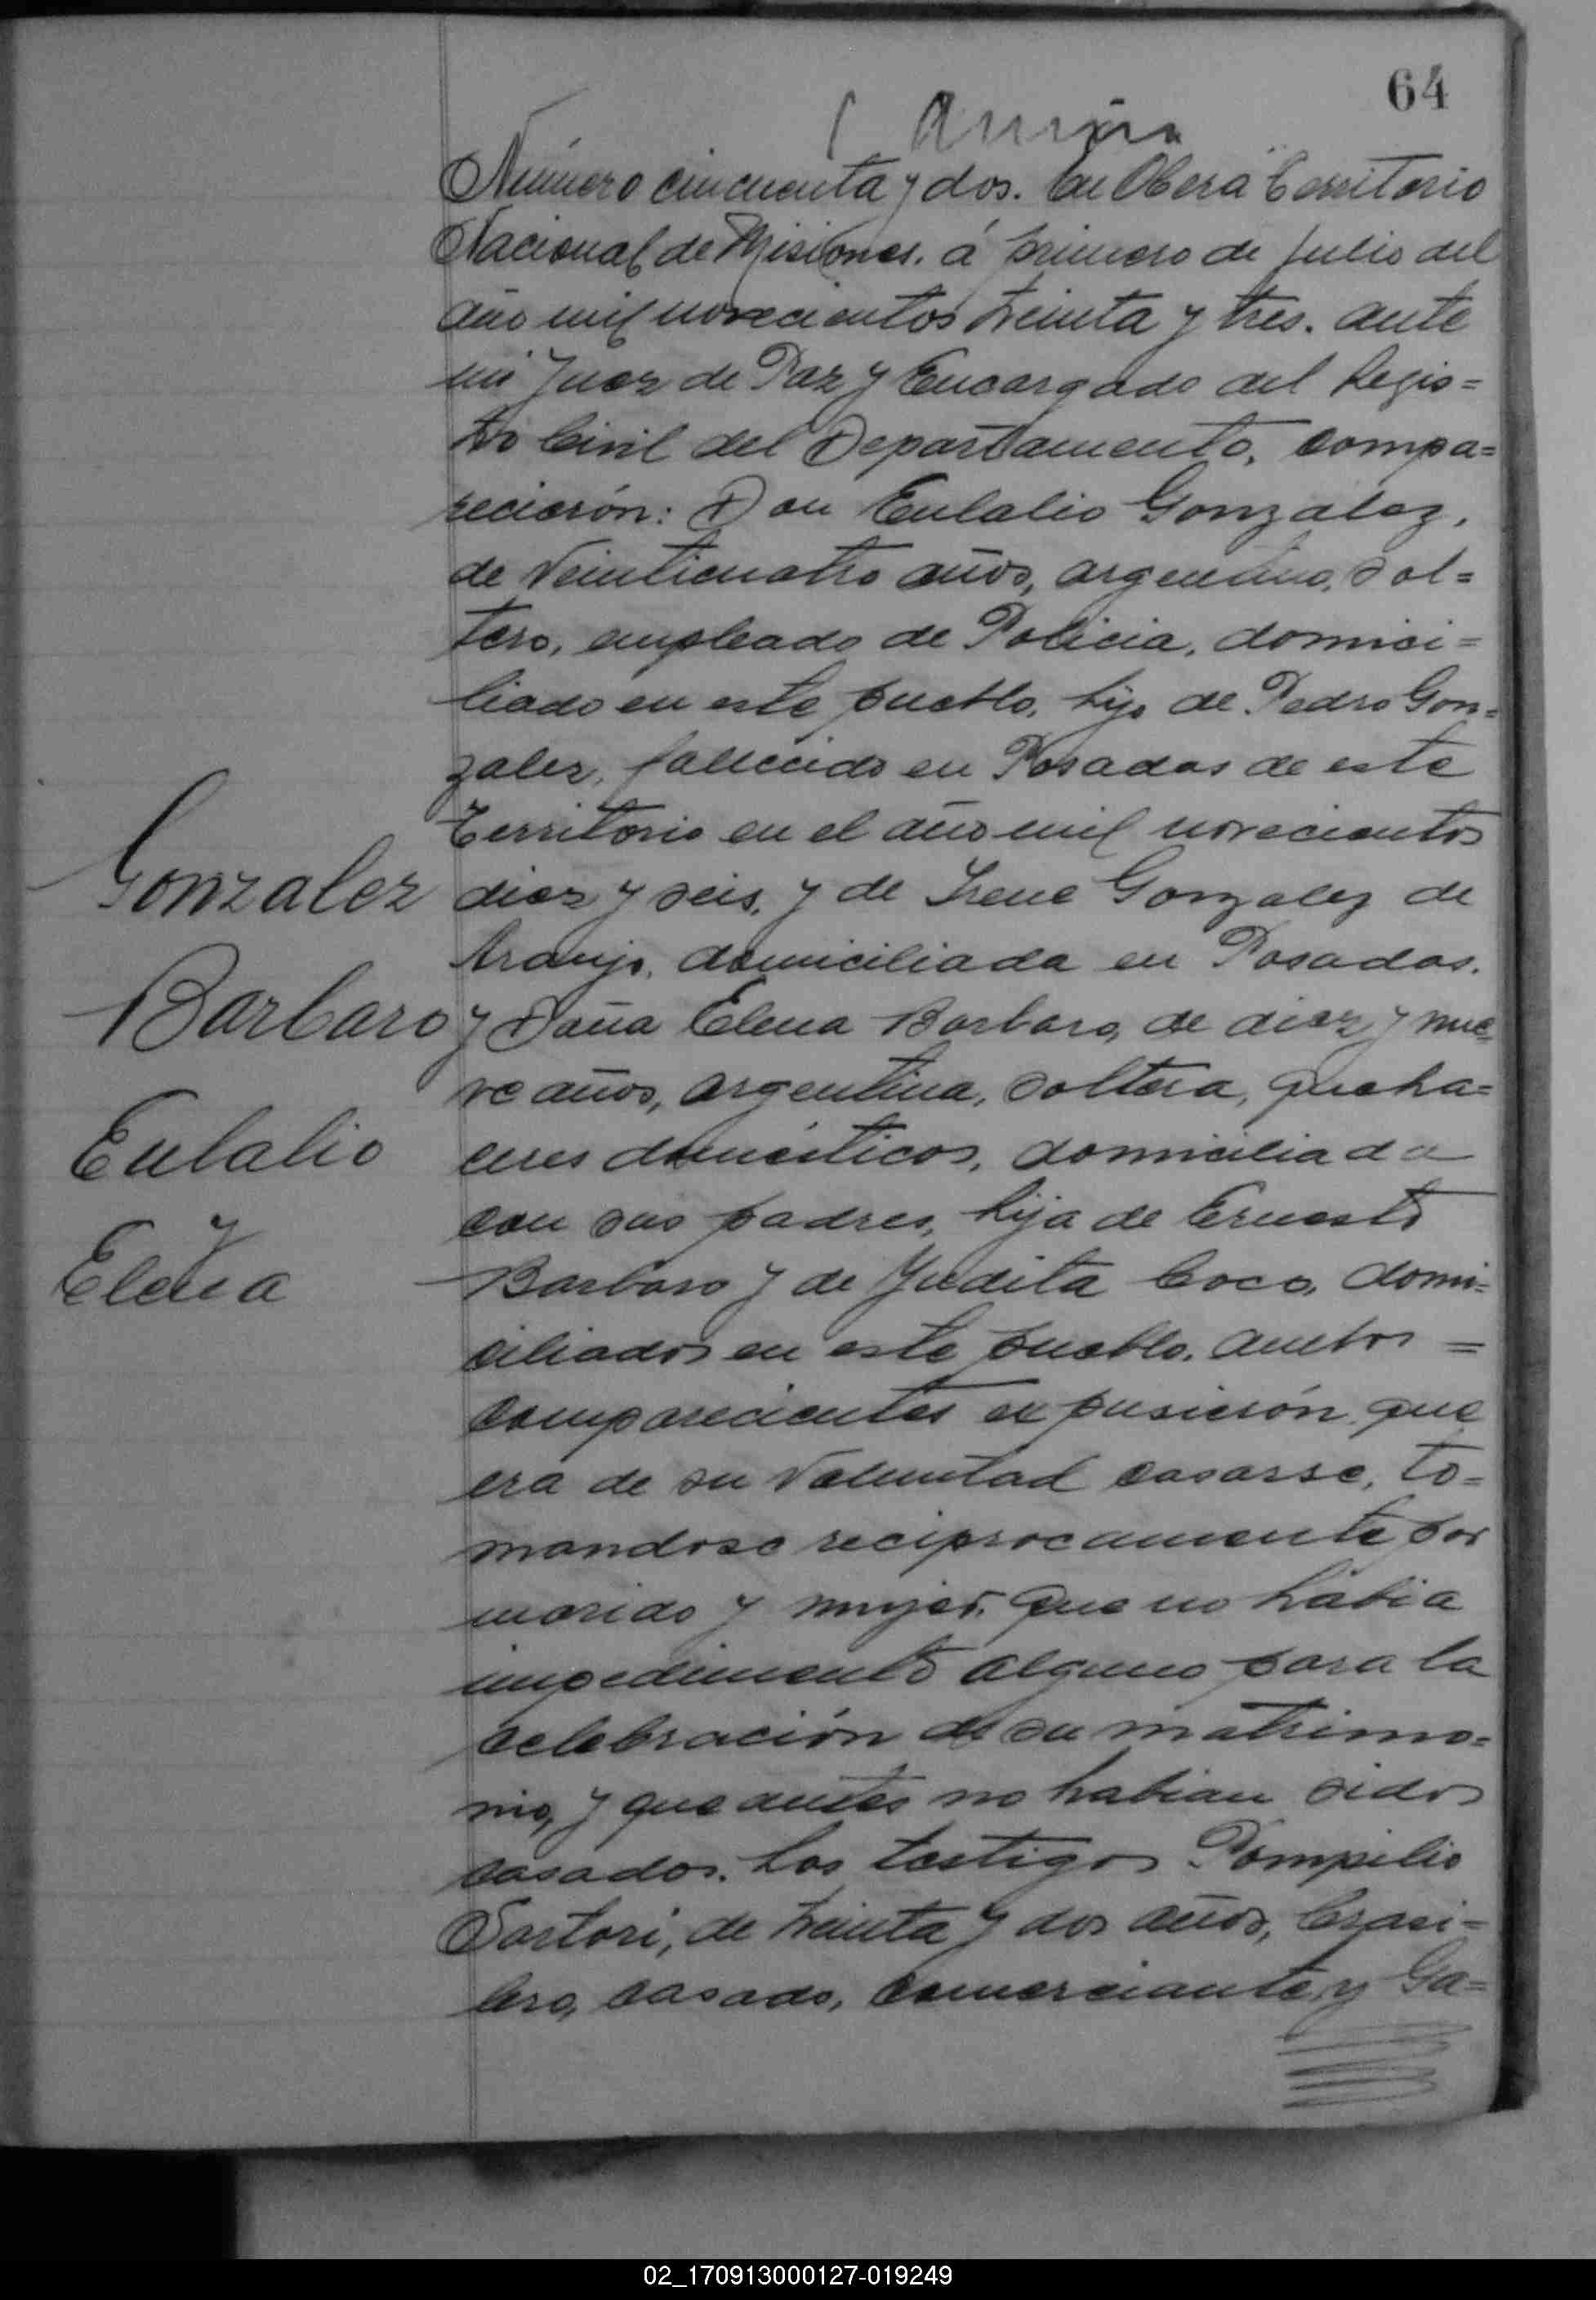 64
Número cincuenta y dos. En Oberá Territorio
Nacional de Misiones. á primero de Julio del
año mil novecientos treinta y tres. ante
mi Juez de Paz y Encargado del Regis=
tro Civil del Departamento, compa=
recierón: Don Eulalio Gonzalez,
de veinticuatro años, argentino, sol=
tero, empleado de Policia, domici=
liado en este pueblo, hijo de Pedro Gon=
zalez, fallecido en Posadas de este
Territorio en el año mil novecientos
diez y seis, y de Irene Gonzalez de
Araujo, domiciliada en Posadas.
y Doña Elena Barbaro, de diez y nue=
ve años, argentina, soltera, queha=
ceres domésticos, domiciliada
con sus padres, hija de Ernesto
Barbaro y de Judita Coco, domi=
ciliados en este pueblo. ambos =
comparecientes expusierón que
era de su voluntad casarse, to=
mandose reciprocamente por
marido y mujer. que no habia
impedimento alguno para la
celebración de su matrimo=
nio, y que antes no habian sidos
casados. Los testigos Pompilio
Sartori, de treinta y dos años, brasi=
lero, casado, comerciante y Ga=
Gonzalez
Barbaro
Eulalio
y
Elena
02_170913000127-019249